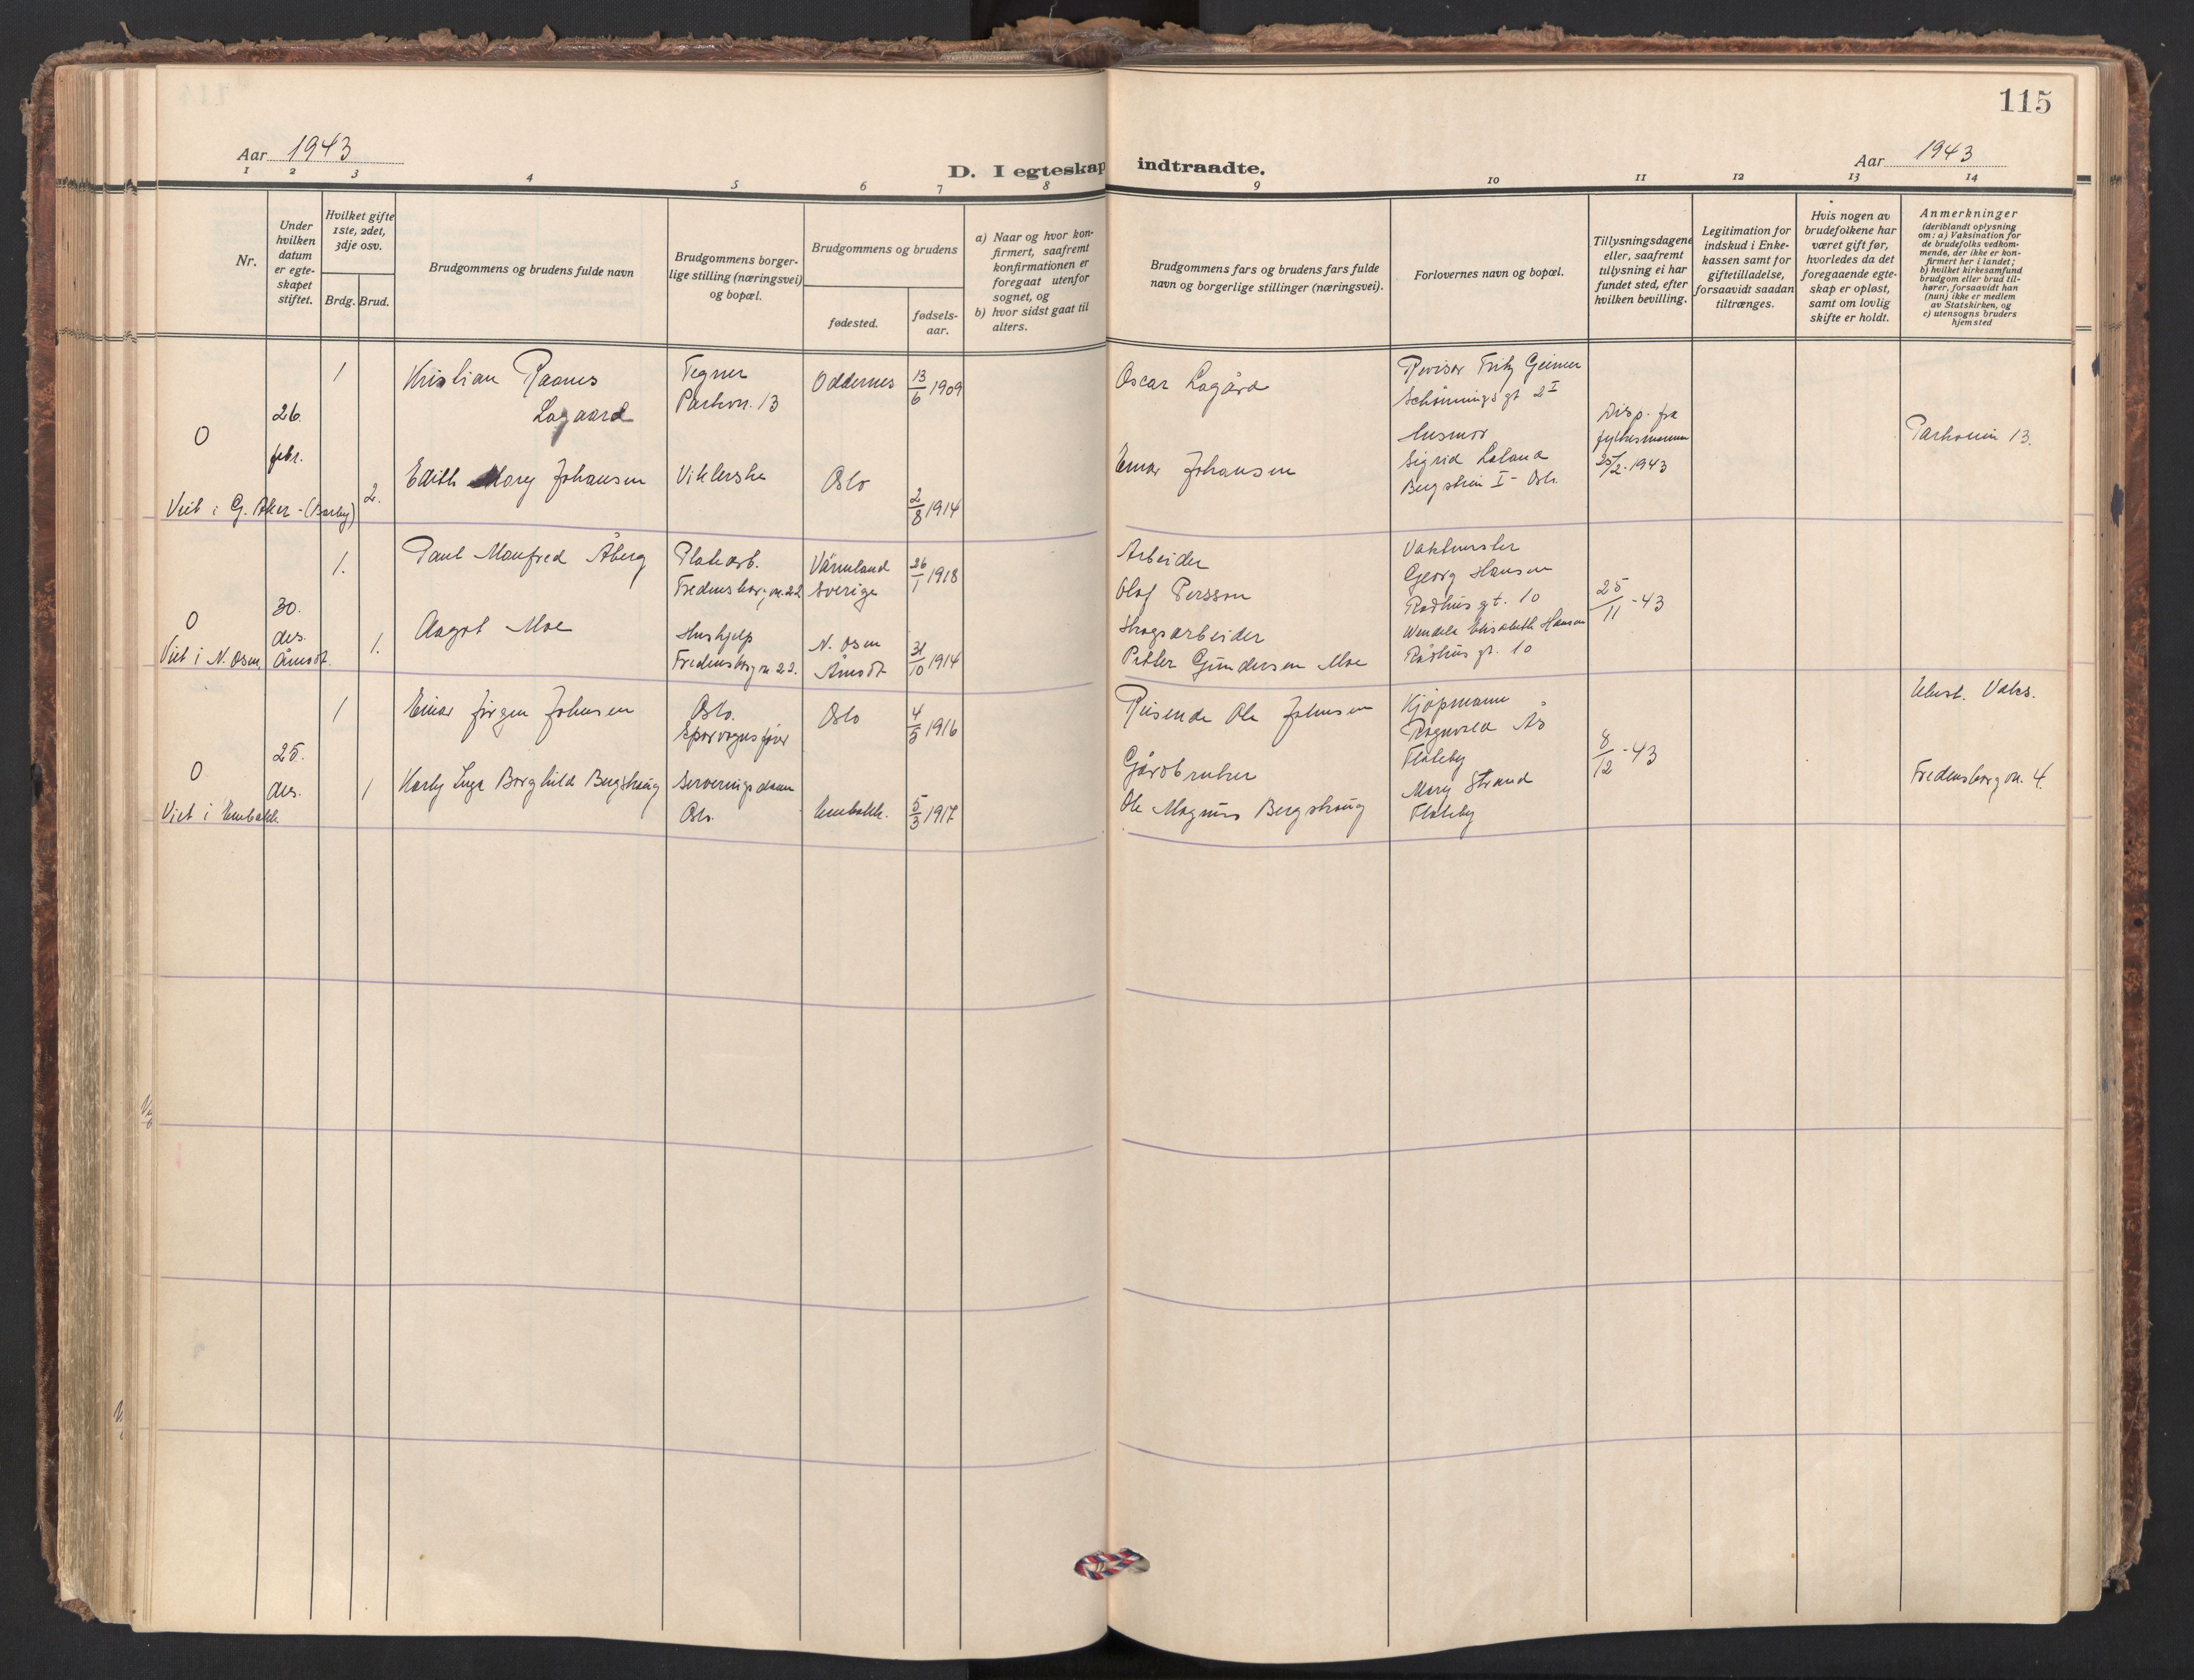 115
Aar 1943
D. I egteskap indtraadte.
Aar 1943
1 2 3 4 5 6 7 8 9 10 11 12 13 14
Nr.
Under
hvilken
datum
er egte-
skapet
stiftet.
Hvilket gifte
1ste, 2det,
3dje osv.
Brdg. Brud.
Brudgommens og brudens fulde navn
Brudgommens borger-
lige stilling (næringsvei)
og bopæl.
Brudgommens og brudens
fødested.
fødsels-
aar.
a) Naar og hvor kon-
firmert, saafremt
konfirmationen er
foregaat utenfor
sognet, og
b) hvor sidst gaat til
alters.
Brudgommens fars og brudens fars fulde
navn og borgerlige stillinger (næringsvei).
Forlovernes navn og bopæl.
Tillysningsdagene
eller, saafremt
tillysning ei har
fundet sted, efter
hvilken bevilling.
Legitimation for
indskud i Enke-
kassen samt for
giftetilladelse,
forsaavidt saadan
tiltrænges.
Hvis nogen av
brudefolkene har
været gift før,
hvorledes da det
foregaaende egte-
skap er opløst,
samt om lovlig
skifte er holdt.
Anmerkninger
(deriblandt oplysning
om: a) Vaksination for
de brudefolks vedkom-
mende, der ikke er kon-
firmert her i landet;
b) hvilket kirkesamfund
brudgom eller brud til-
hører, forsaavidt han
(hun) ikke er medlem
av Statskirken, og
c) utensogns bruders
hjemsted
0
26.
febr.
Viet i G. Aker - (Barby)
1
2.
Kristian Raanes
Lagaard
Edith Mary Johansen
Tegner
Parkvn. 13
Viklerske
Oddernes
Oslo
13/6 1909
2/8 1914
Oscar Lagård
Einar Johansen
Revisor Fritz Geiner
Schønningsgt 2 I
Husmor
Sigrid Laland
Bergstien I - Oslo
Disp. fra
fylkesmannen
25/2-1943
Parkveien 13.
0
30.
des.
Viet i N. Osen, Åmodt.
1.
1.
Paul Manfred Åberg
Aagot Moe
Platearb.
Fredensborgvn. 22
Hushjelp
Fredensborgvn 22.
Värmland
Sverige
N. Osen
Åmodt
26/1 1918
31/10 1914
Arbeider
Olof Persson
Skogsarbeider
Petter Gundersen Moe
Vaktmester
Georg Hansen
Rådhusgt. 10
Wendela Elisabeth Hansen
Rådhusgt. 10
25/11-43
0
25.
des.
Viet i Enebakk
1
1
Einar Jørgen Johnsen
Karly Inga Borghild Bergskaug
Oslo.
Sporvognsfører
Serveringsdame
Oslo.
Oslo
Enebakk.
4/5 1916
5/3 1917
Reisende Ole Johnsen
Gårdbruker
Ole Magnus Bergskaug
Kjøpmann
Ragnvald Ås
Flateby
Mary Strand
Flateby
8/12-43
Ulest. Vaks.
Fredensborgvn. 4.